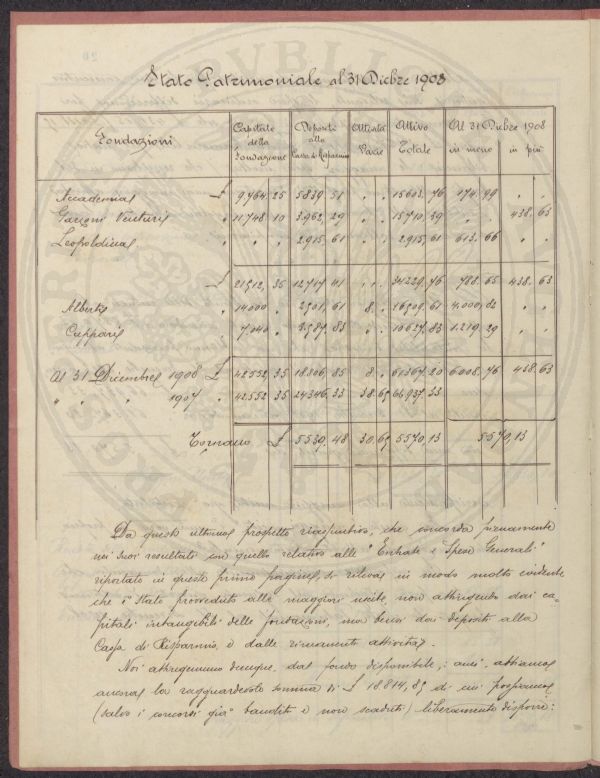 Stato Patrimoniale al 31 Dicbre 1908
Fondazioni Capitale della Fondazione Deposito alla Cassa di Risparmio Attività Varie Attivo Totale Al 31 Dicbre 1908 in meno in più
Accademia £ 9,764, 25 5839, 51 " " 15603, 76 174, 99 " "
Garzoni Venturi " 11748 10 3,962, 29 " " 15,710, 39 " " 438, 63
Leopoldina " " " 2,915, 61 " " 2,915, 61 613, 66 " "
£ 21512, 35 12717 41 " " 34229, 76 788, 65 438, 63
Alberti 14000 " 2501, 61 8 " 16509, 61 4.000, 82
Cuppari 7040 " 3587, 83 " " 10627, 83 1.219, 29
Al 31 Dicembre 1908 £ 42552, 35 18806, 85 8 " 61367, 20 6008, 76 438, 63
" " " 1907 " 42552 35 24346, 33 38, 65 66937, 33
Tornano £ 5539, 48 30, 65 5570, 13 5570, 13
Da questo ultimo prospetto riassuntivo, che concorda pienamente
nei suoi resultati con quello relativo alle "Entrate e Spese Generali"
riportato in queste prime pagine, si rileva in modo molto evidente
che è stato provveduto alle maggiori uscite, non attingendo dai ca-
pitali intangibili delle fondazioni, ma bensì dai depositi alla
Cassa di Risparmio, e dalle rimanenti attività.
Noi attingemmo dunque, dal fondo disponibile, anzi, abbiamo
ancora la ragguardevole somma di £ 18814,85 di cui possiamo
(salvo i concorsi già banditi e non scaduti) liberamente disporre: